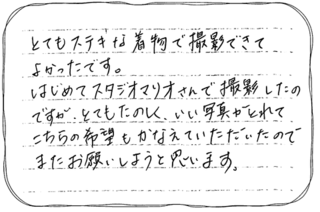 とてもステキな着物で撮影できて
よかったです。
はじめてスタジオマリオさんで撮影したの
ですが、とてもたのしく、いい写真がとれて
こちらの希望もかなえていただいたので
またお願いしようと思います。